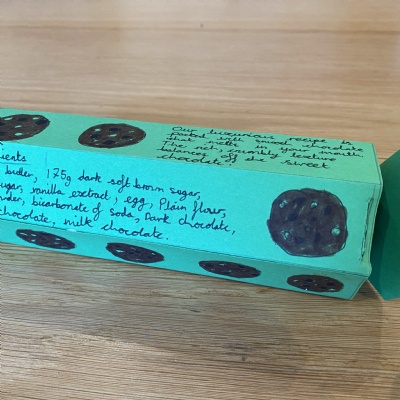 Our luxurious recipe is
packed with smooth chocolate
that melts in your mouth.
The rich, crumbly texture
balances off the sweet
chocolate!
ients
butter, 175g dark soft brown sugar,
ugar, vanilla extract, egg, Plain flour,
der, bicarbonate of soda, Dark chocolate,
chocolate, milk chocolate.